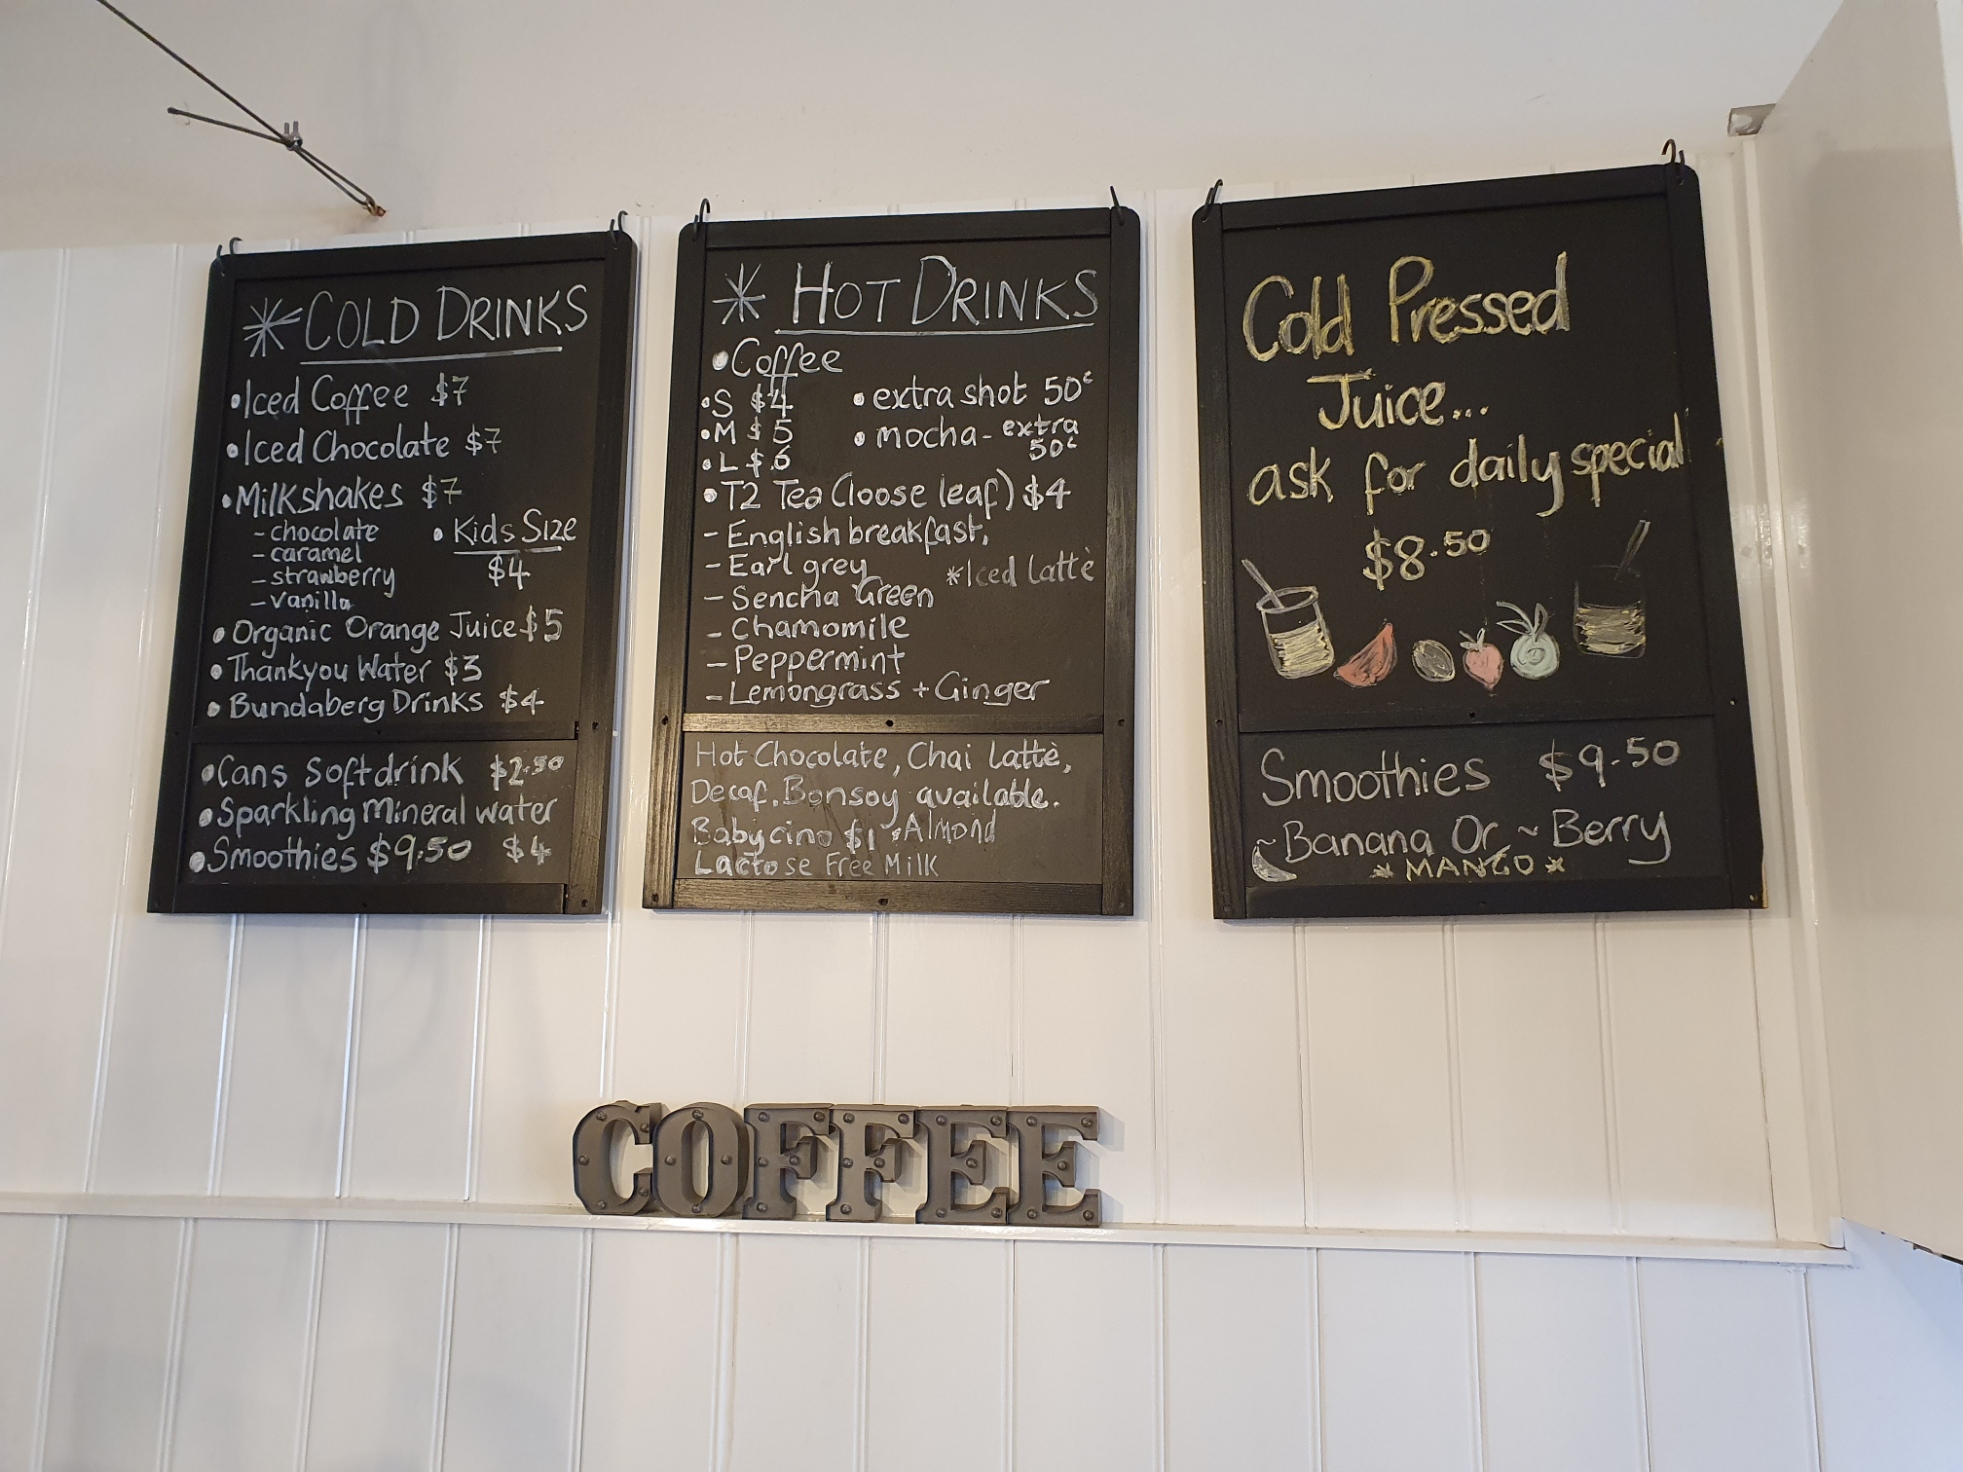 COLD DRINKS
Iced Coffee $7
Iced Chocolate $7
Milkshakes $7
- chocolate
- caramel
- strawberry
- vanilla
Kids Size
$4
Organic Orange Juice $5
Thankyou Water $3
Bundaberg Drinks $4
Cans Softdrink $2.50
Sparkling Mineral water
$4
Smoothies $9.50
HOT DRINKS
Coffee
S $4
M $5
L $6
extra shot 50c
mocha - extra
50c
T2 Tea (loose leaf) $4
- English breakfast,
- Earl grey
- Sencha Green
- Chamomile
- Peppermint
- Lemongrass + Ginger
*Iced lattè
Hot Chocolate, Chai lattè,
Decaf. Bonsoy available.
Babycino $1 *Almond
Lactose Free Milk
Cold Pressed
Juice...
ask for daily special
$8.50
Smoothies $9.50
~Banana Or ~ Berry
* MANGO *
COFFEE